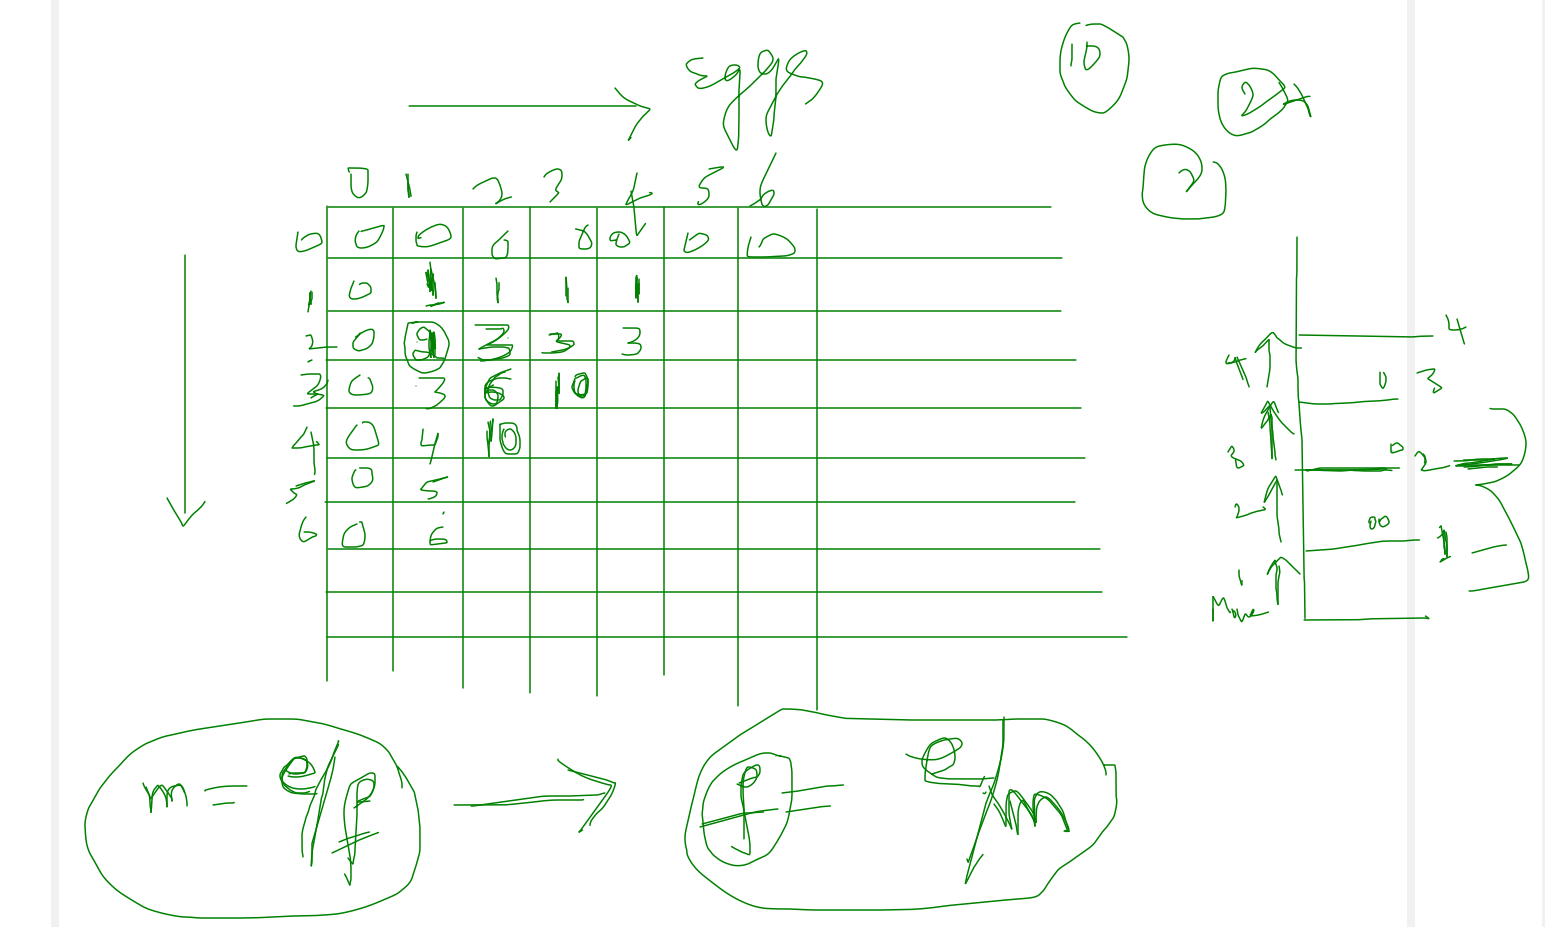 10
Eggs
2
2
0 1 2 3 4 5 6
0 0 0 0 0 0 0 0
1 0 1 1 1 1
2 0 3 3 3
3 0 3 6 10
4 0 4 10
5 0 5
6 0 6
4
4 0 3
3 0 2
2 00 1
1
Move
m = e/f
f = e/m